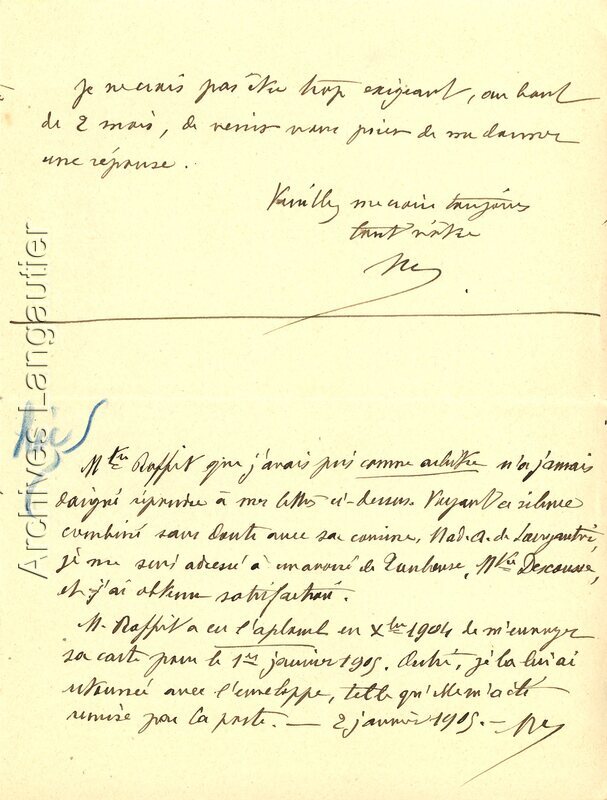 Je ne crois pas être trop exigeant, au bout
de 2 mois, de venir vous prier de me donner
une réponse.
Veuillez me croire toujours
tout vôtre
Archives Langautier
Mtre Raffit que j'avais pris comme arbitre n'a jamais
daigné répondre à mes lettres ci-dessus. Voyant ce silence
combiné sans doute avec sa cousine, Mad. A. de
je me suis adressé à un avoué de Toulouse, Mtre
et j'ai obtenu satisfaction.
M. Raffit a eu l'aplomb en Xbre 1904 de m'envoyer
sa carte pour le 1er janvier 1905. Outré, je la lui ai
retournée avec l'enveloppe, telle qu'elle m'a été
remise par la poste. — 2 janvier 1905. —